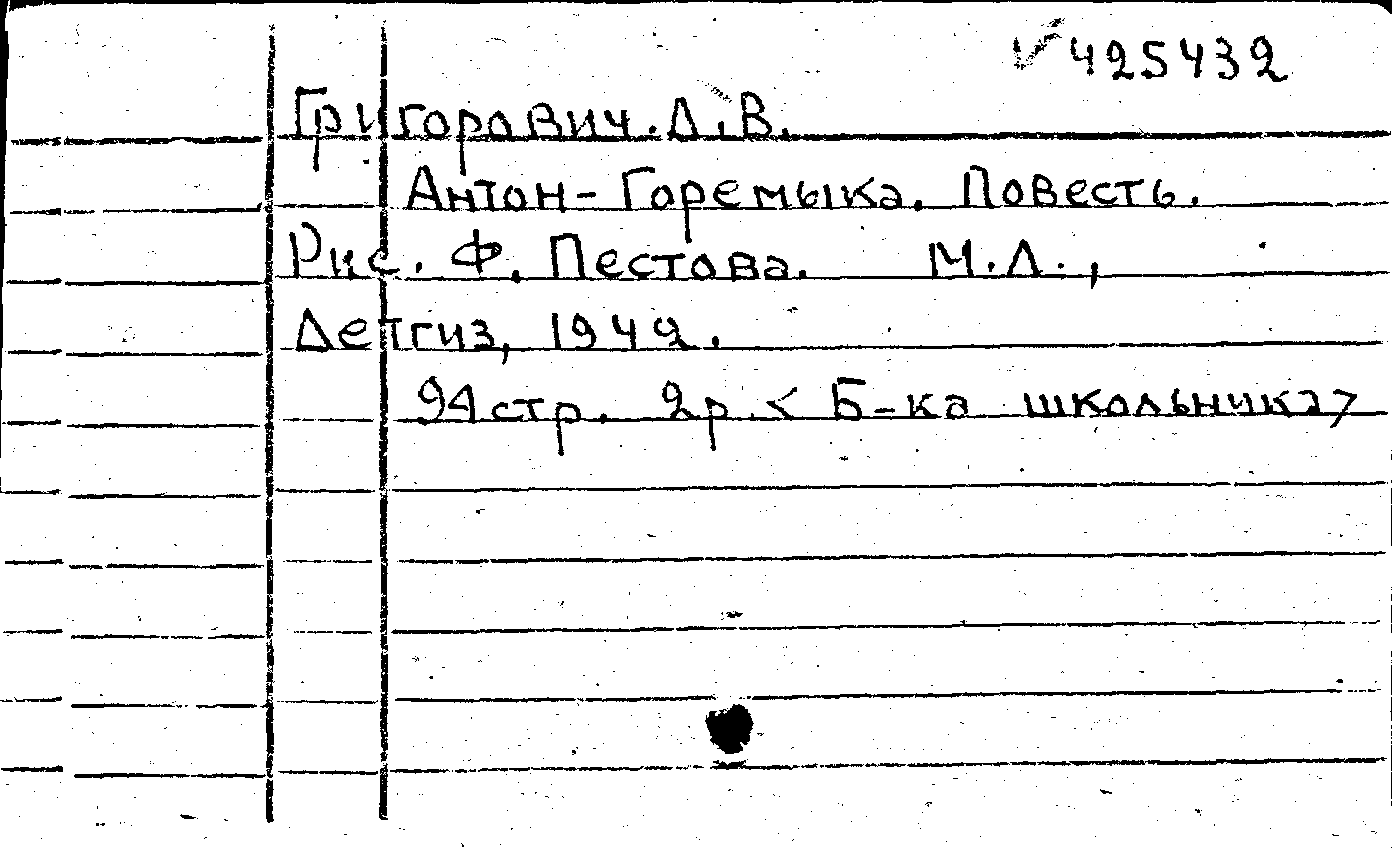 ✓425432
Григорович. Д. В.
Антон-Горемыка. Повесть.
Рис. Ф. Пестова. М.Л.,
Детгиз, 1942.
94стр. 2р. < Б-ка школьника>